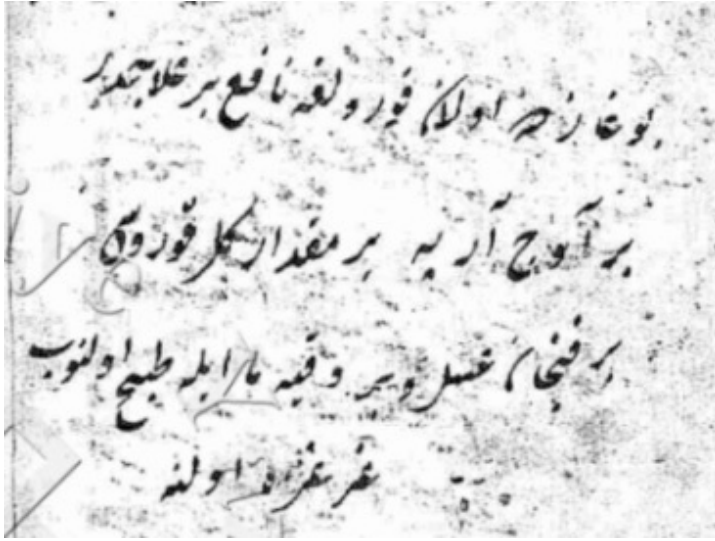 بوغازده اولان قورولغه نافع بر علاجدر
بر آوج آرپه بر مقدار كل قوروسی
بر فنجان عسل و بر وقیه ما ایله طبخ اولنوب
غرغره اولنه